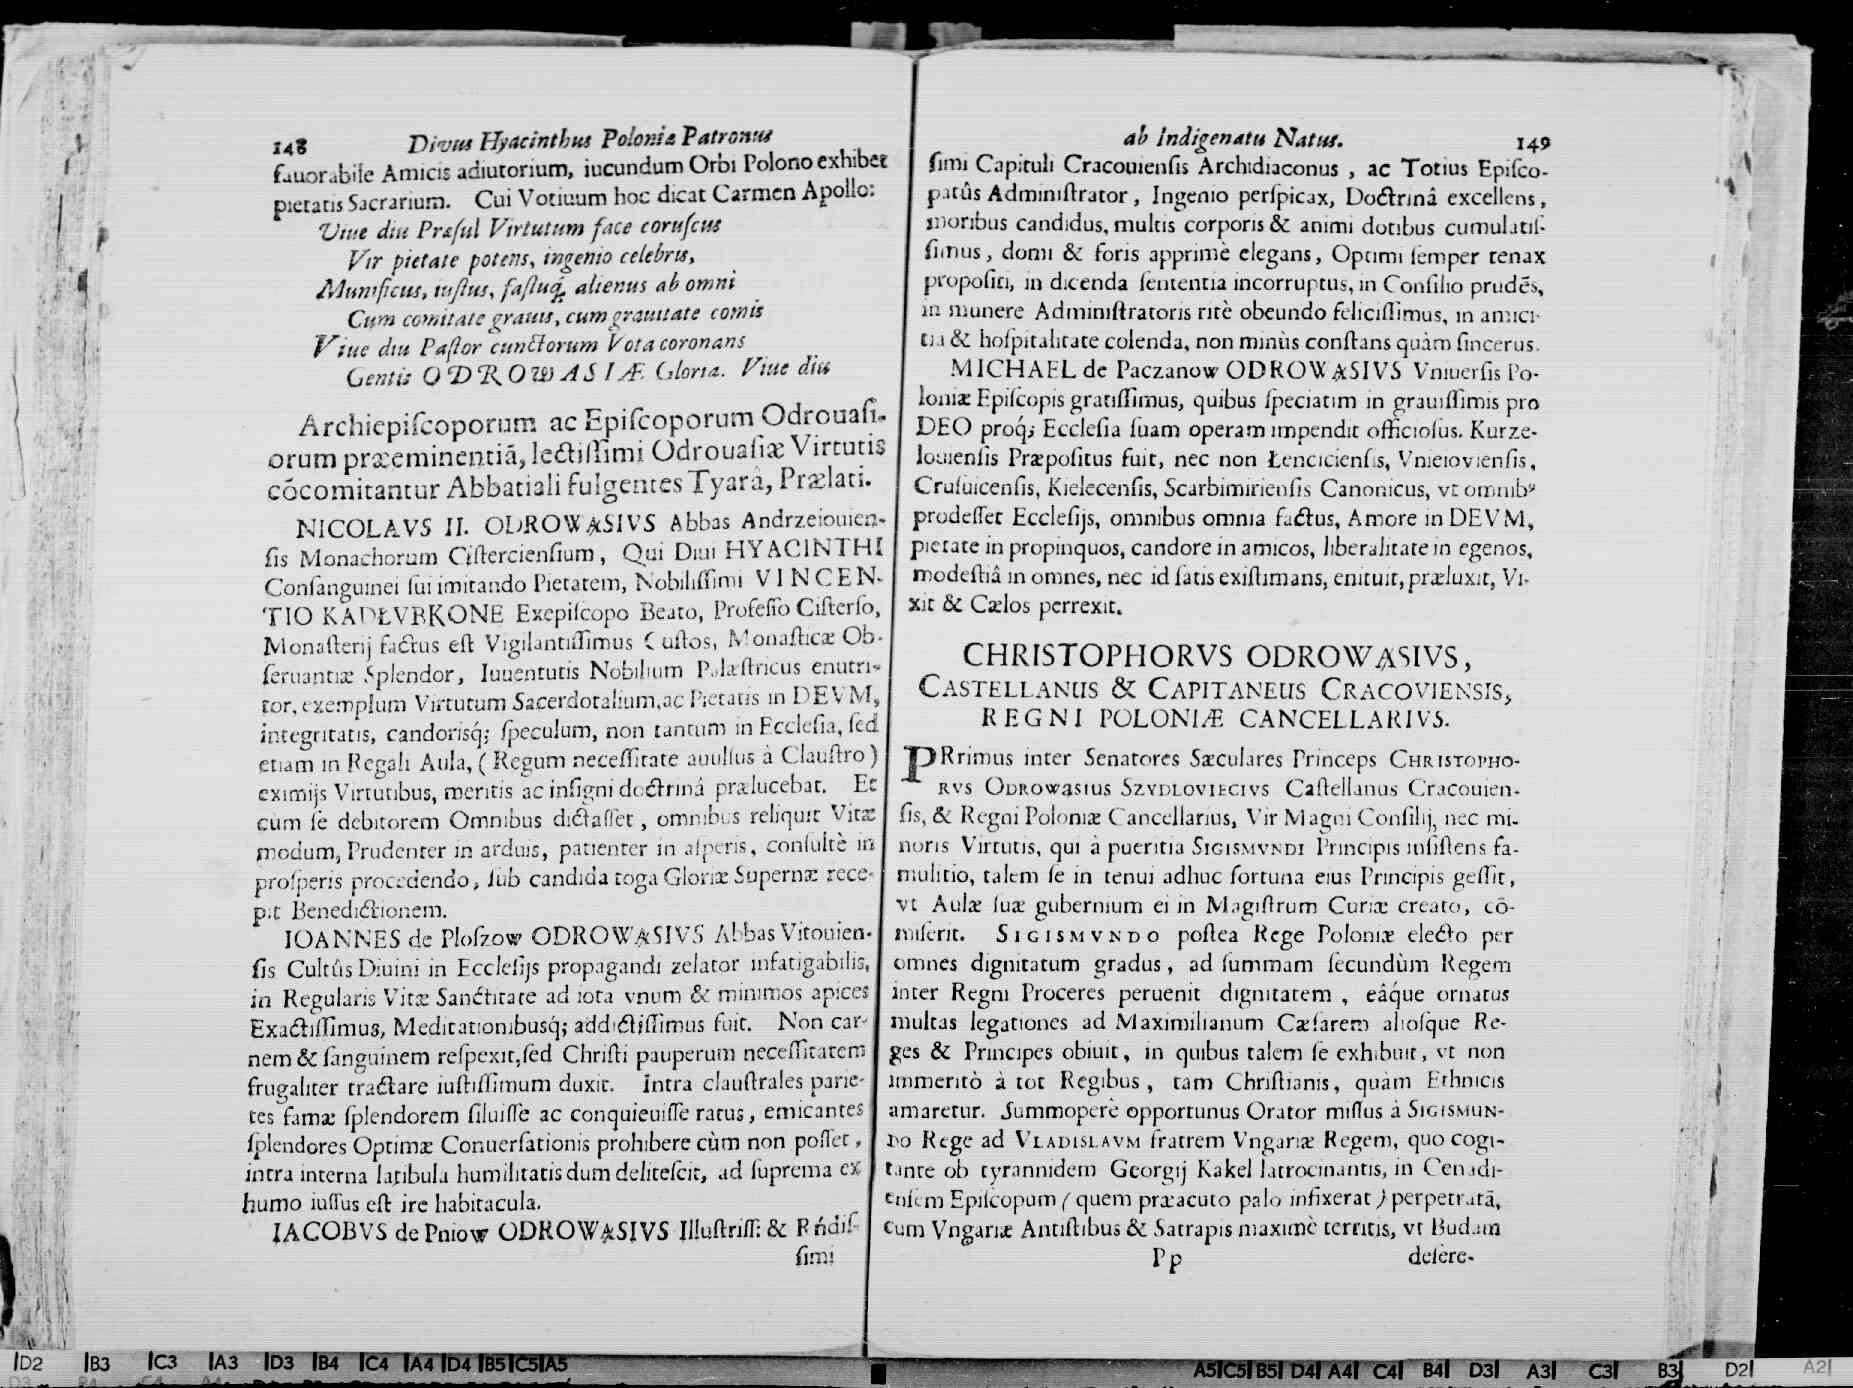 148 Divus Hyacinthus Poloniæ Patronus
fauorabile Amicis adiutorium, iucundum Orbi Polono exhibet
pietatis Sacrarium. Cui Votiuum hoc dicat Carmen Apollo:
Uiue diu Præſul Virtutum face coruſcus
Vir pietate potens, ingenio celebris,
Munificus, iuſtus, faſtuq́; alienus ab omni
Cum comitate grauis, cum grauitate comis
Viue diu Paſtor cunctorum Vota coronans
Gentis ODROWASIÆ Gloria. Viue diu
Archiepiſcoporum ac Epiſcoporum Odrouaſi-
orum præeminentiã, lectiſſimi Odrouaſiæ Virtutis
cõcomitantur Abbatiali fulgentes Tyarâ, Prælati.
NICOLAVS II. ODROWASIVS Abbas Andrzeiouien-
ſis Monachorum Ciſtercienſium, Qui Diui HYACINTHI
Conſanguinei ſui imitando Pietatem, Nobiliſſimi VINCEN-
TIO KADŁVBKONE Exepiſcopo Beato, Profeſſo Ciſterſo,
Monaſterij factus eſt Vigilantiſſimus Cuſtos, Monaſticæ Ob-
ſeruantiæ Splendor, Iuuentutis Nobilium Palæſtricus enutri-
tor, exemplum Virtutum Sacerdotalium, ac Pietatis in DEVM,
integritatis, candorisq́; ſpeculum, non tantum in Eccleſia, ſed
etiam in Regali Aula, (Regum neceſſitate auulſus à Clauſtro)
eximijs Virtutibus, meritis ac inſigni doctrinâ prælucebat. Et
cùm ſe debitorem Omnibus dictaſſet, omnibus reliquit Vitæ
modum, Prudenter in arduis, patienter in aſperis, conſultè in
proſperis procedendo, ſub candida toga Gloriæ Supernæ rece-
pit Benedictionem.
IOANNES de Ploſzow ODROWASIVS Abbas Vitouien-
ſis Cultûs Diuini in Eccleſijs propagandi zelator infatigabilis,
in Regularis Vitæ Sanctitate ad iota vnum & minimos apices
Exactiſſimus, Meditationibusq́; addictiſſimus fuit. Non car-
nem & ſanguinem reſpexit, ſed Chriſti pauperum neceſſitatem
frugaliter tractare iuſtiſſimum duxit. Intra clauſtrales parie-
tes famæ ſplendorem ſiluiſſe ac conquieuiſſe ratus, emicantes
ſplendores Optimæ Conuerſationis prohibere cùm non poſſet,
intra interna latibula humilitatis dum deliteſcit, ad ſuprema ex
humo iuſſus eſt ire habitacula.
IACOBVS de Pniow ODROWASIVS Illuſtriſſ: & Rńdiſ-
ſimi
ab Indigenatu Natus. 149
ſimi Capituli Cracouienſis Archidiaconus, ac Totius Epiſco-
patûs Adminiſtrator, Ingenio perſpicax, Doctrinâ excellens,
moribus candidus, multis corporis & animi dotibus cumulatiſ-
ſimus, domi & foris apprimè elegans, Optimi ſemper tenax
propoſiti, in dicenda ſententia incorruptus, in Conſilio prudẽs,
in munere Adminiſtratoris ritè obeundo feliciſſimus, in amici-
tia & hoſpitalitate colenda, non minùs conſtans quàm ſincerus.
MICHAEL de Paczanow ODROWASIVS Vniuerſis Po-
loniæ Epiſcopis gratiſſimus, quibus ſpeciatim in grauiſſimis pro
DEO proq́; Eccleſia ſuam operam impendit officioſus. Kurze-
louienſis Præpoſitus fuit, nec non Łencicienſis, Vnieiovienſis,
Cruſuicenſis, Kielecenſis, Scarbimirienſis Canonicus, vt omnibꝰ
prodeſſet Eccleſijs, omnibus omnia factus, Amore in DEVM,
pietate in propinquos, candore in amicos, liberalitate in egenos,
modeſtiâ in omnes, nec id ſatis exiſtimans, enituit, præluxit, Vi-
xit & Cælos perrexit.
CHRISTOPHORVS ODROWASIVS,
CASTELLANUS & CAPITANEUS CRACOVIENSIS,
REGNI POLONIÆ CANCELLARIVS.
PRrimus inter Senatores Sæculares Princeps CHRISTOPHO-
RVS ODROWASIUS SZYDLOVIECIVS Caſtellanus Cracouien-
ſis, & Regni Poloniæ Cancellarius, Vir Magni Conſilij, nec mi-
noris Virtutis, qui à pueritia SIGISMVNDI Principis inſiſtens fa-
mulitio, talem ſe in tenui adhuc fortuna eius Principis geſſit,
vt Aulæ ſuæ gubernium ei in Magiſtrum Curiæ creato, cõ-
miſerit. SIGISMVNDO poſtea Rege Poloniæ electo per
omnes dignitatum gradus, ad ſummam ſecundùm Regem
inter Regni Proceres peruenit dignitatem, eâq́ue ornatus
multas legationes ad Maximilianum Cæſarem alioſque Re-
ges & Principes obiuit, in quibus talem ſe exhibuit, vt non
immeritò à tot Regibus, tam Chriſtianis, quàm Ethnicis
amaretur. Summoperè opportunus Orator miſſus à SIGISMUN-
DO Rege ad VLADISLAVM fratrem Vngariæ Regem, quo cogi-
tante ob tyrannidem Georgij Kakel latrocinantis, in Cenadi-
enſem Epiſcopum (quem præacuto palo infixerat) perpetratã,
cum Vngariæ Antiſtibus & Satrapis maximè territis, vt Budam
Pp deſere-
D2 B3 C3 A3 D3 B4 C4 A4 D4 B5 C5 A5
A5 C5 B5 D4 A4 C4 B4 D3 A3 C3 B3 D2 A2